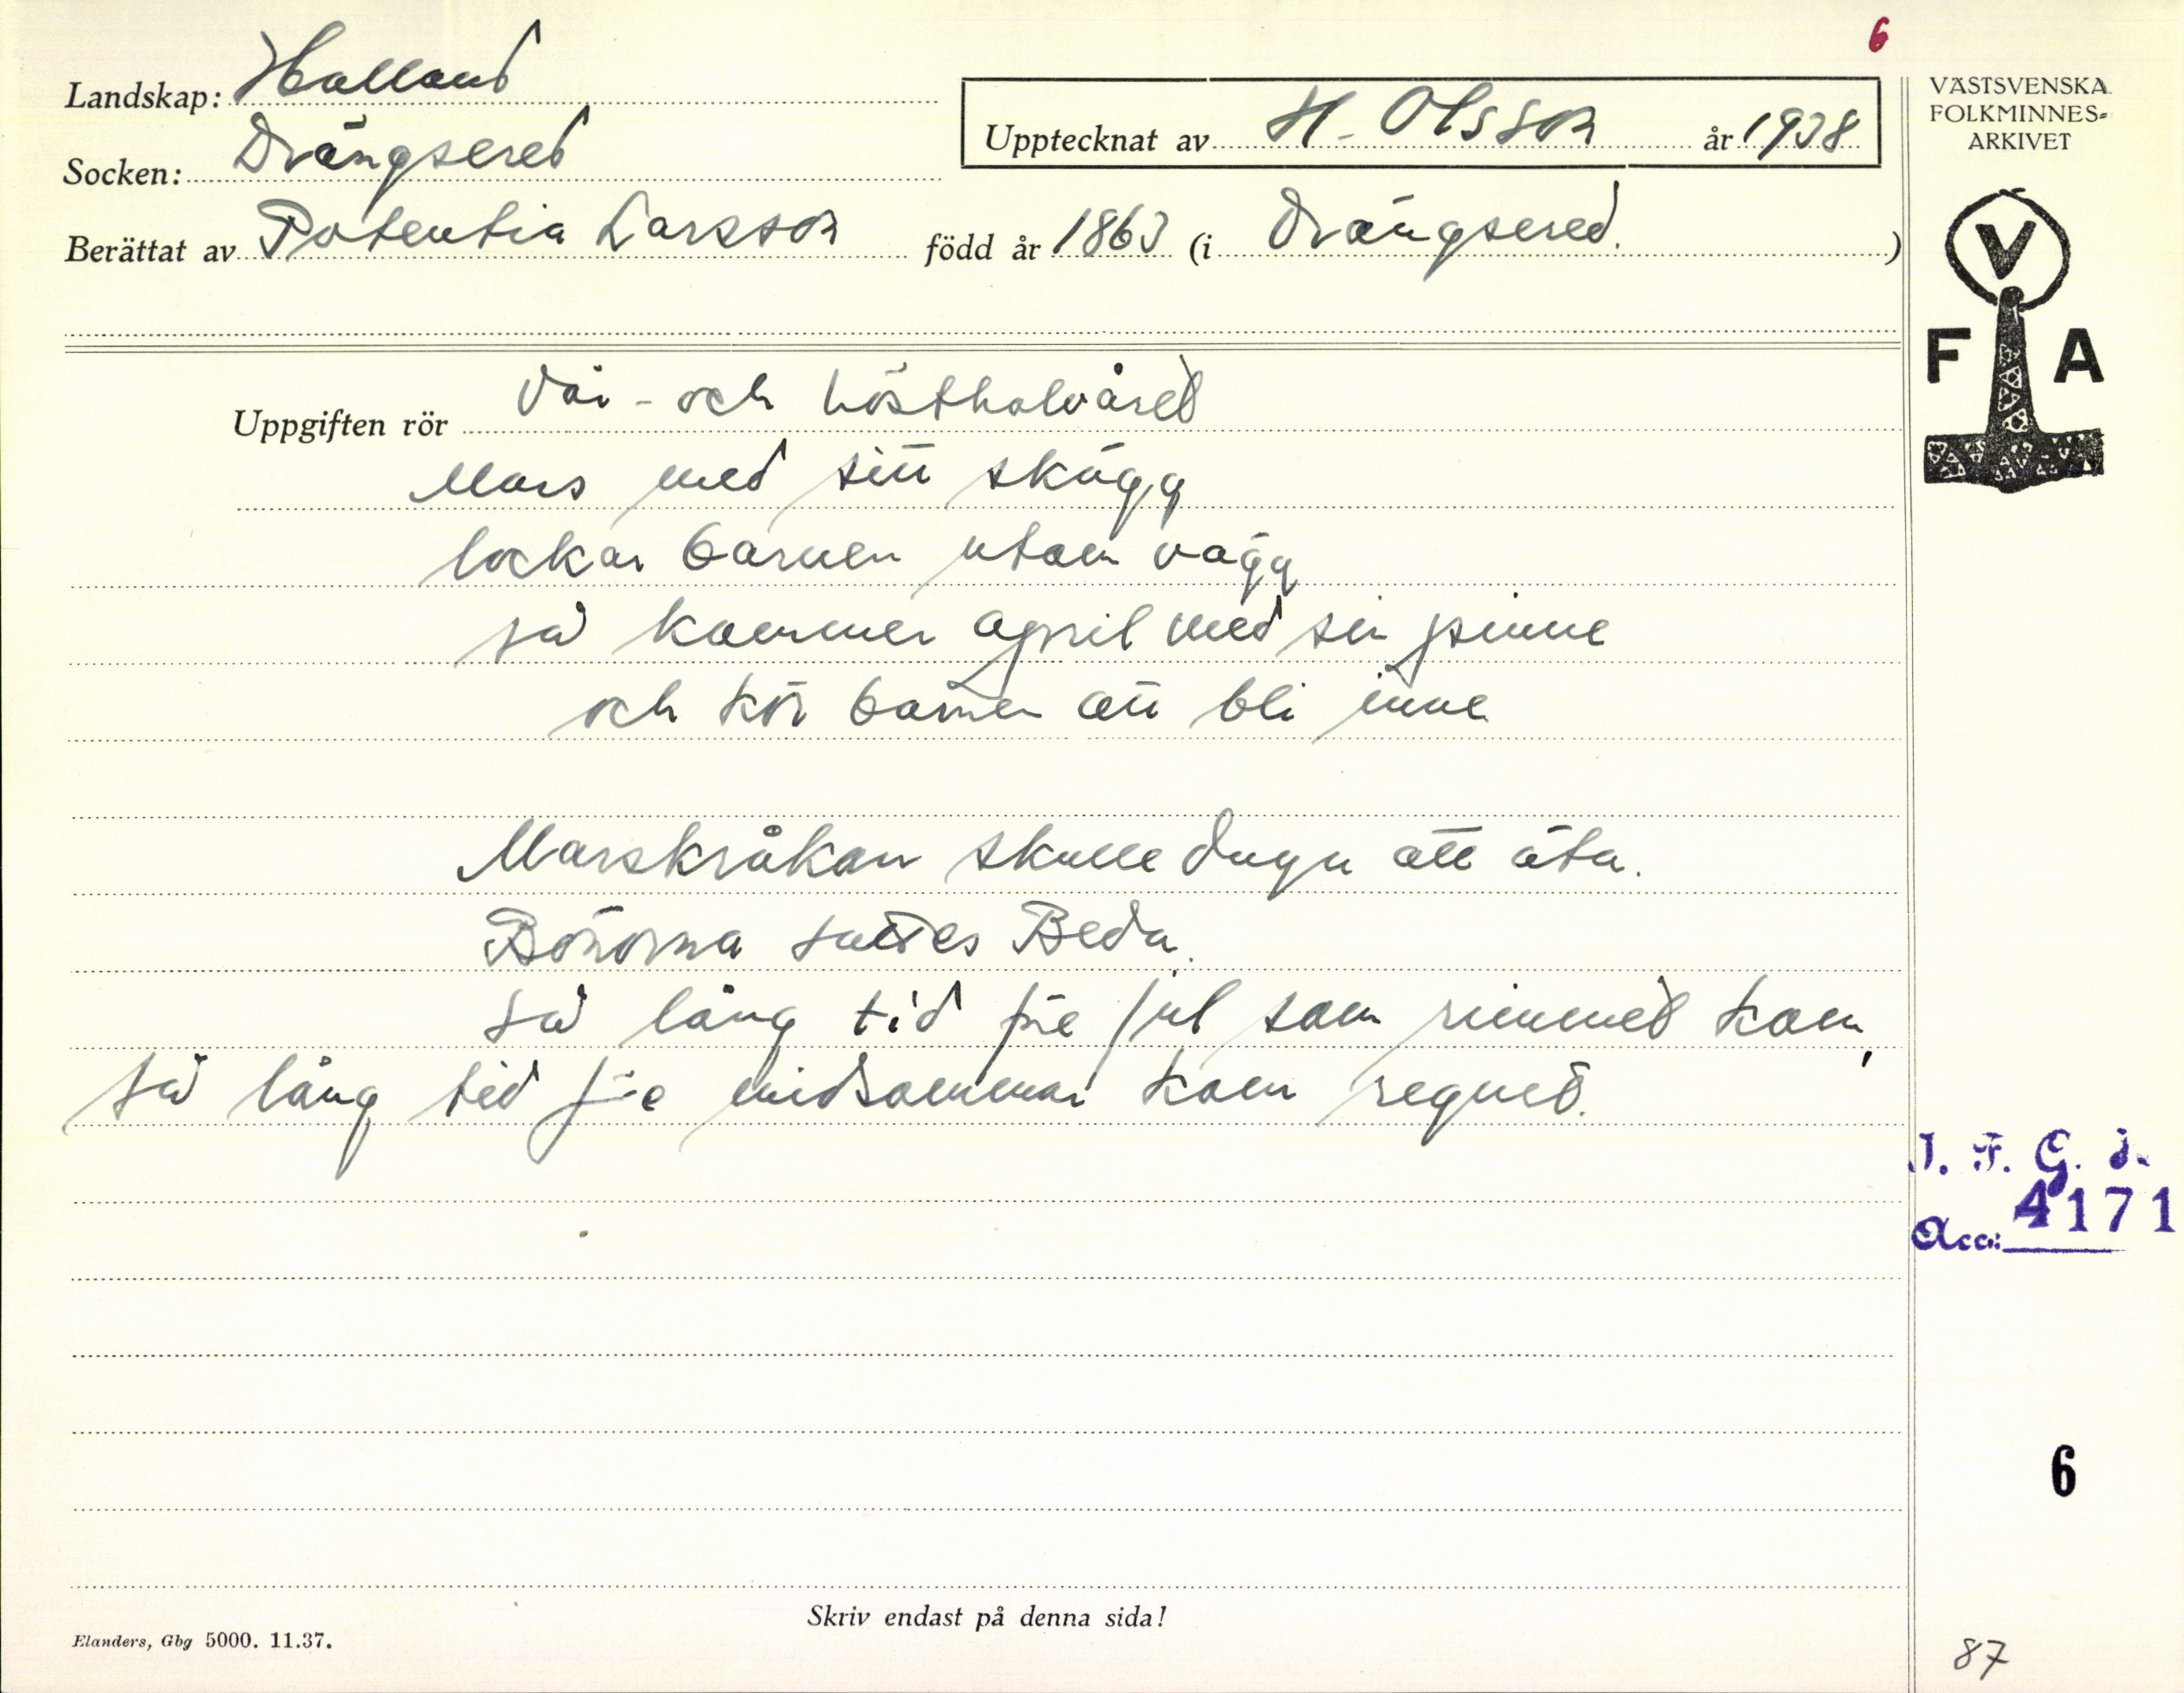 6
Landskap: Halland
Socken: Drängsered
Upptecknat av H. Olsson år 1938
Berättat av Potentia Larsson född år 1863 (i Drängsered.)
VÄSTSVENSKA
FOLKMINNES-
ARKIVET
V
F A
Uppgiften rör Vår- och hösthalvåret
Mars med sitt skägg
lockar barnen utom vägg
så kommer april med sin pinne
och kör barnen att bli inne
Marskråkan skulle duga att äta.
Bönorna sattes Beda.
Så lång tid före jul som rimmet kom,
så lång tid före midsommar kom regnet.
I. F. G. s.
Acc: 4171
6
Skriv endast på denna sida!
Elanders, Gbg 5000. 11.37.
87